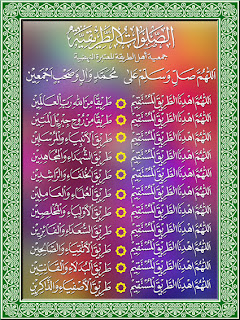 الصلوات الطريقية
اللهم صل وسلم على محمد وآل وصحب أجمعين
اللهم اهدنا الطريق المستقيم طريقا من الله رب العالمين
اللهم اهدنا الطريق المستقيم
اللهم اهدنا الطريق المستقيم طريق الأنبياء والمرسلين
اللهم اهدنا الطريق المستقيم طريق الشهداء والمجاهدين
اللهم اهدنا الطريق المستقيم طريق الخلفاء والراشدين
اللهم اهدنا الطريق المستقيم طريق العلماء والعاملين
اللهم اهدنا الطريق المستقيم طريق الأولياء والمخلصين
اللهم اهدنا الطريق المستقيم طريق السعداء والفائزين
اللهم اهدنا الطريق المستقيم طريق الأتقياء والصالحين
اللهم اهدنا الطريق المستقيم طريق البدلاء والقانتين
اللهم اهدنا الطريق المستقيم طريق الأصفياء والذاكرين